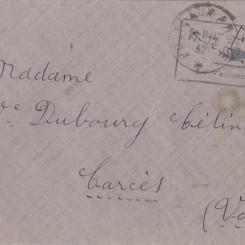 Madame
Ve Dubourg Célin
Carcès
(Va